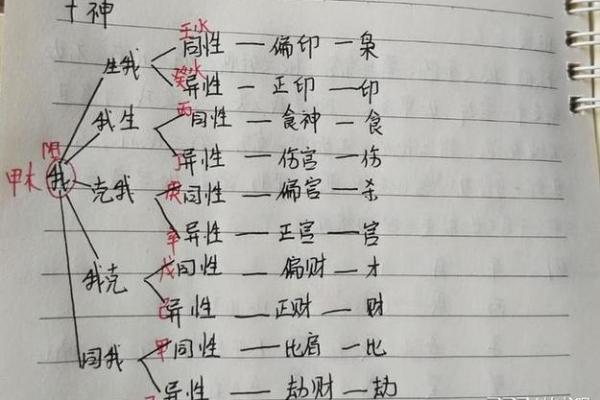 十神
壬水
同性 — 偏印 — 枭
生我
癸水
异性 — 正印 — 印
丙
同性 — 食神 — 食
我生
丁
异性 — 伤宫 — 伤
阳
甲木 我
克我
庚 同性 — 偏宫 — 杀
辛 异性 — 正宫 — 官
戊 同性 — 偏财 — 才
我克
己 异性 — 正财 — 财
甲 同性 — 比肩 — 比
同我
异性 — 劫财 — 劫